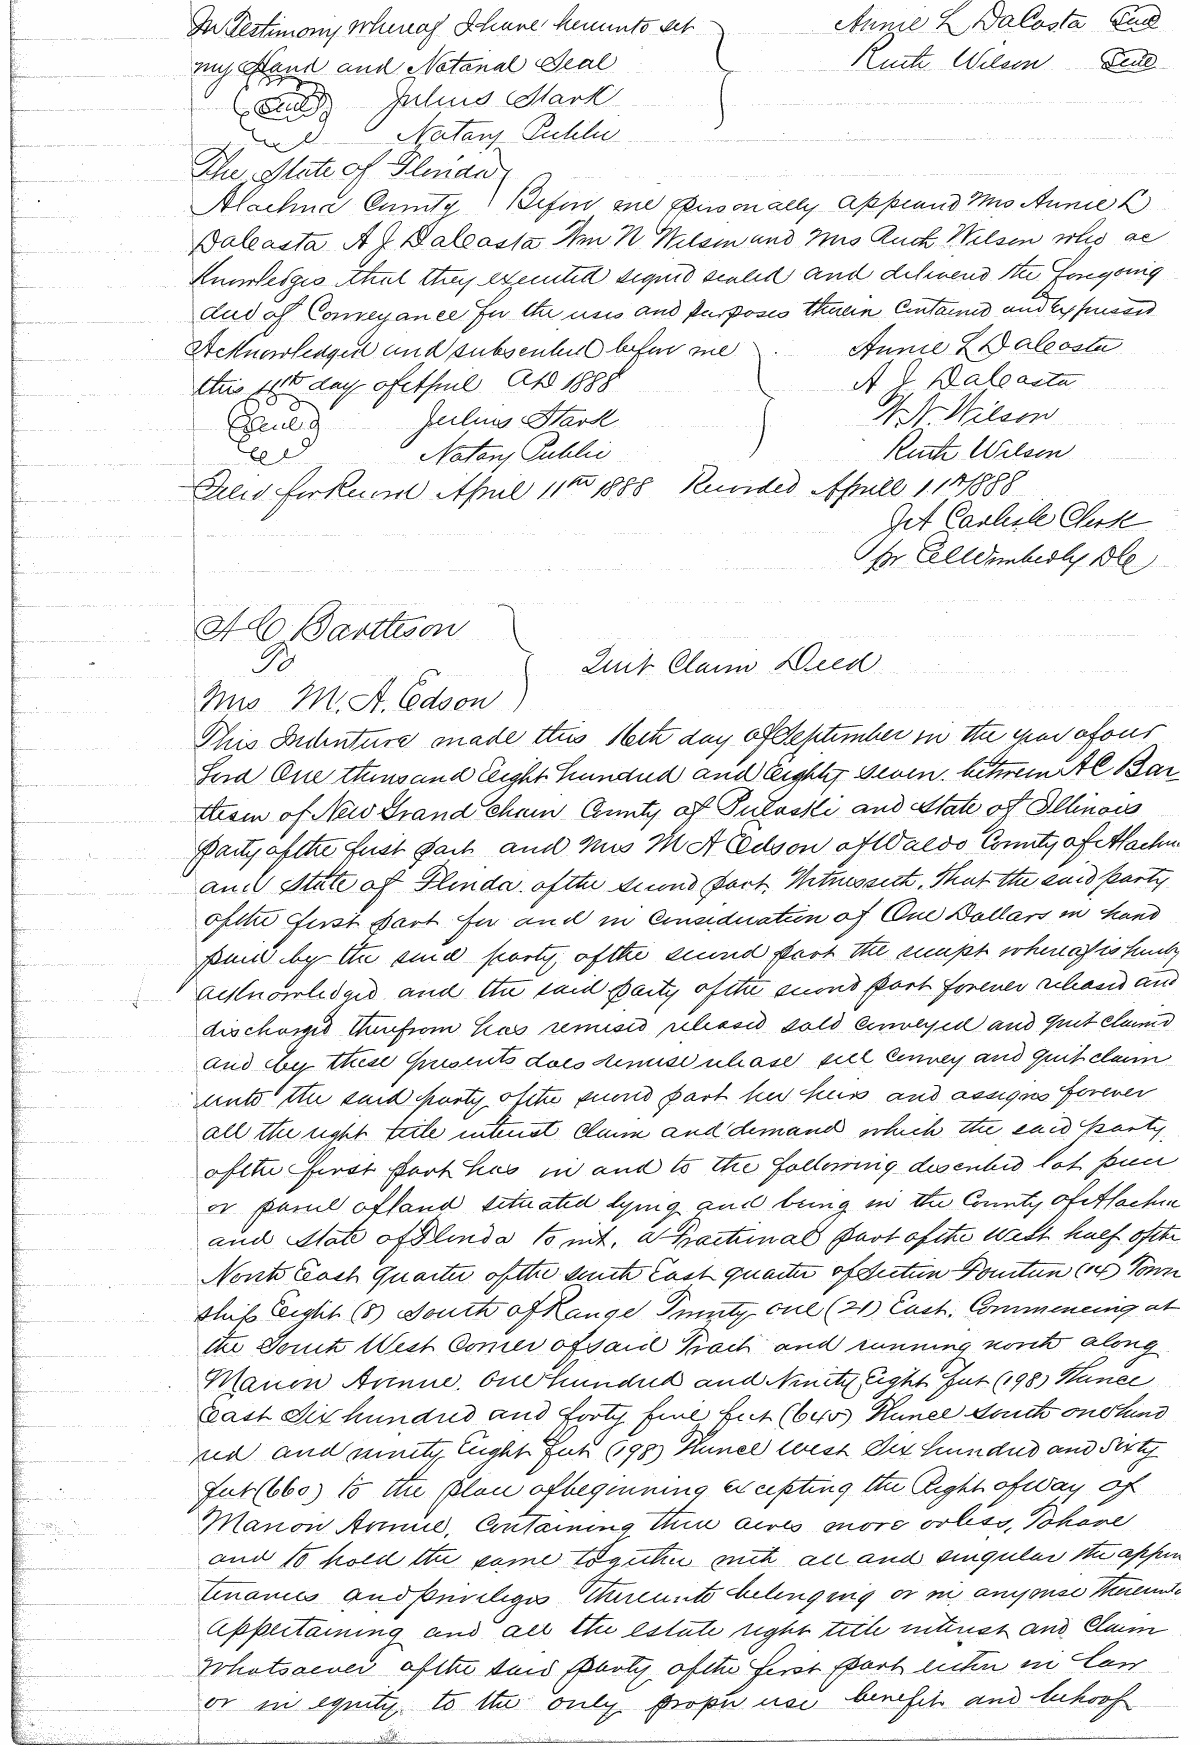 In Testimony whereof I have hereunto set Annie L DaCosta Seal
my Hand and Notarial Seal Ruth Wilson Seal
(Seal) Julius Stark
Notary Public
The State of Florida
Alachua County } Before me personally appeard Mrs Annie L
DaCosta A J. DaCosta Wm N Wilson and Mrs Ruth Wilson who ac
knowledges that they executed signed sealed and deliverd the foregoing
deed of Conveyance for the uses and purposes therein Contained and expressed
Acknowledged and subscribed before me Annie L DaCosta
this 11th day of April AD 1888 A J. DaCosta
(Seal) Julius Stark W.N. Wilson
Notary Public Ruth Wilson
Filed for Record April 11th 1888 Recorded Aprill 11th 1888
Clerk
pr Wimberly DC
A C Bartleson
To Quit Claim Deed
Mrs M. A. Edson
This Indenture made this 16th day of September in the year of our
Lord One thousand Eight hundred and Eighty Seven. between A C Bar
tleson of New Grand Chain County of Pulaski and State of Illinois
Party of the first part and Mrs M A Edson of Waldo County of Alachua
and State of Florida. of the second part, Witnesseth, That the said party
of the first part for and in Consideration of One Dollars in hand
paid by the said party of the second part the receipt whereof is hereby
acknowledged and the said party of the second part forever released and
discharged therefrom has remised released sold conveyed and quit claimd
and by these presents does remise release sell Convey and quit claim
unto the said party of the second part her heirs and assigns forever
all the right title interest claim and demand which the said party
of the first part has in and to the following described lot piece
or parcel of land situated lying and being in the County of Alachua
and State of Florida to wit, a Fractional part of the West half of the
North East quarter of the south East quarter of Section Fourteen (14) Town
ship Eight (8) South of Range Twenty one (21) East. Commencing at
the South West Corner of said Tract and running north along
Marion Avenue. One hundred and Ninety Eight Feet (198) Thence
East Six hundred and forty five feet (645) Thence South one hund
red and ninety Eight Feet (198) Thence West Six hundred and Sixty
feet (660) to the place of beginning excepting the Right of Way of
Marion Avenue, Containing three acres more or less, To have
and to hold the same together with all and singular the appur
tenances and privileges thereunto belonging or in anywise thereunto
appertaining and all the estate right title interest and Claim
whatsoever of the said party of the first part either in law
or in equity, to the only proper use benefit and behoof